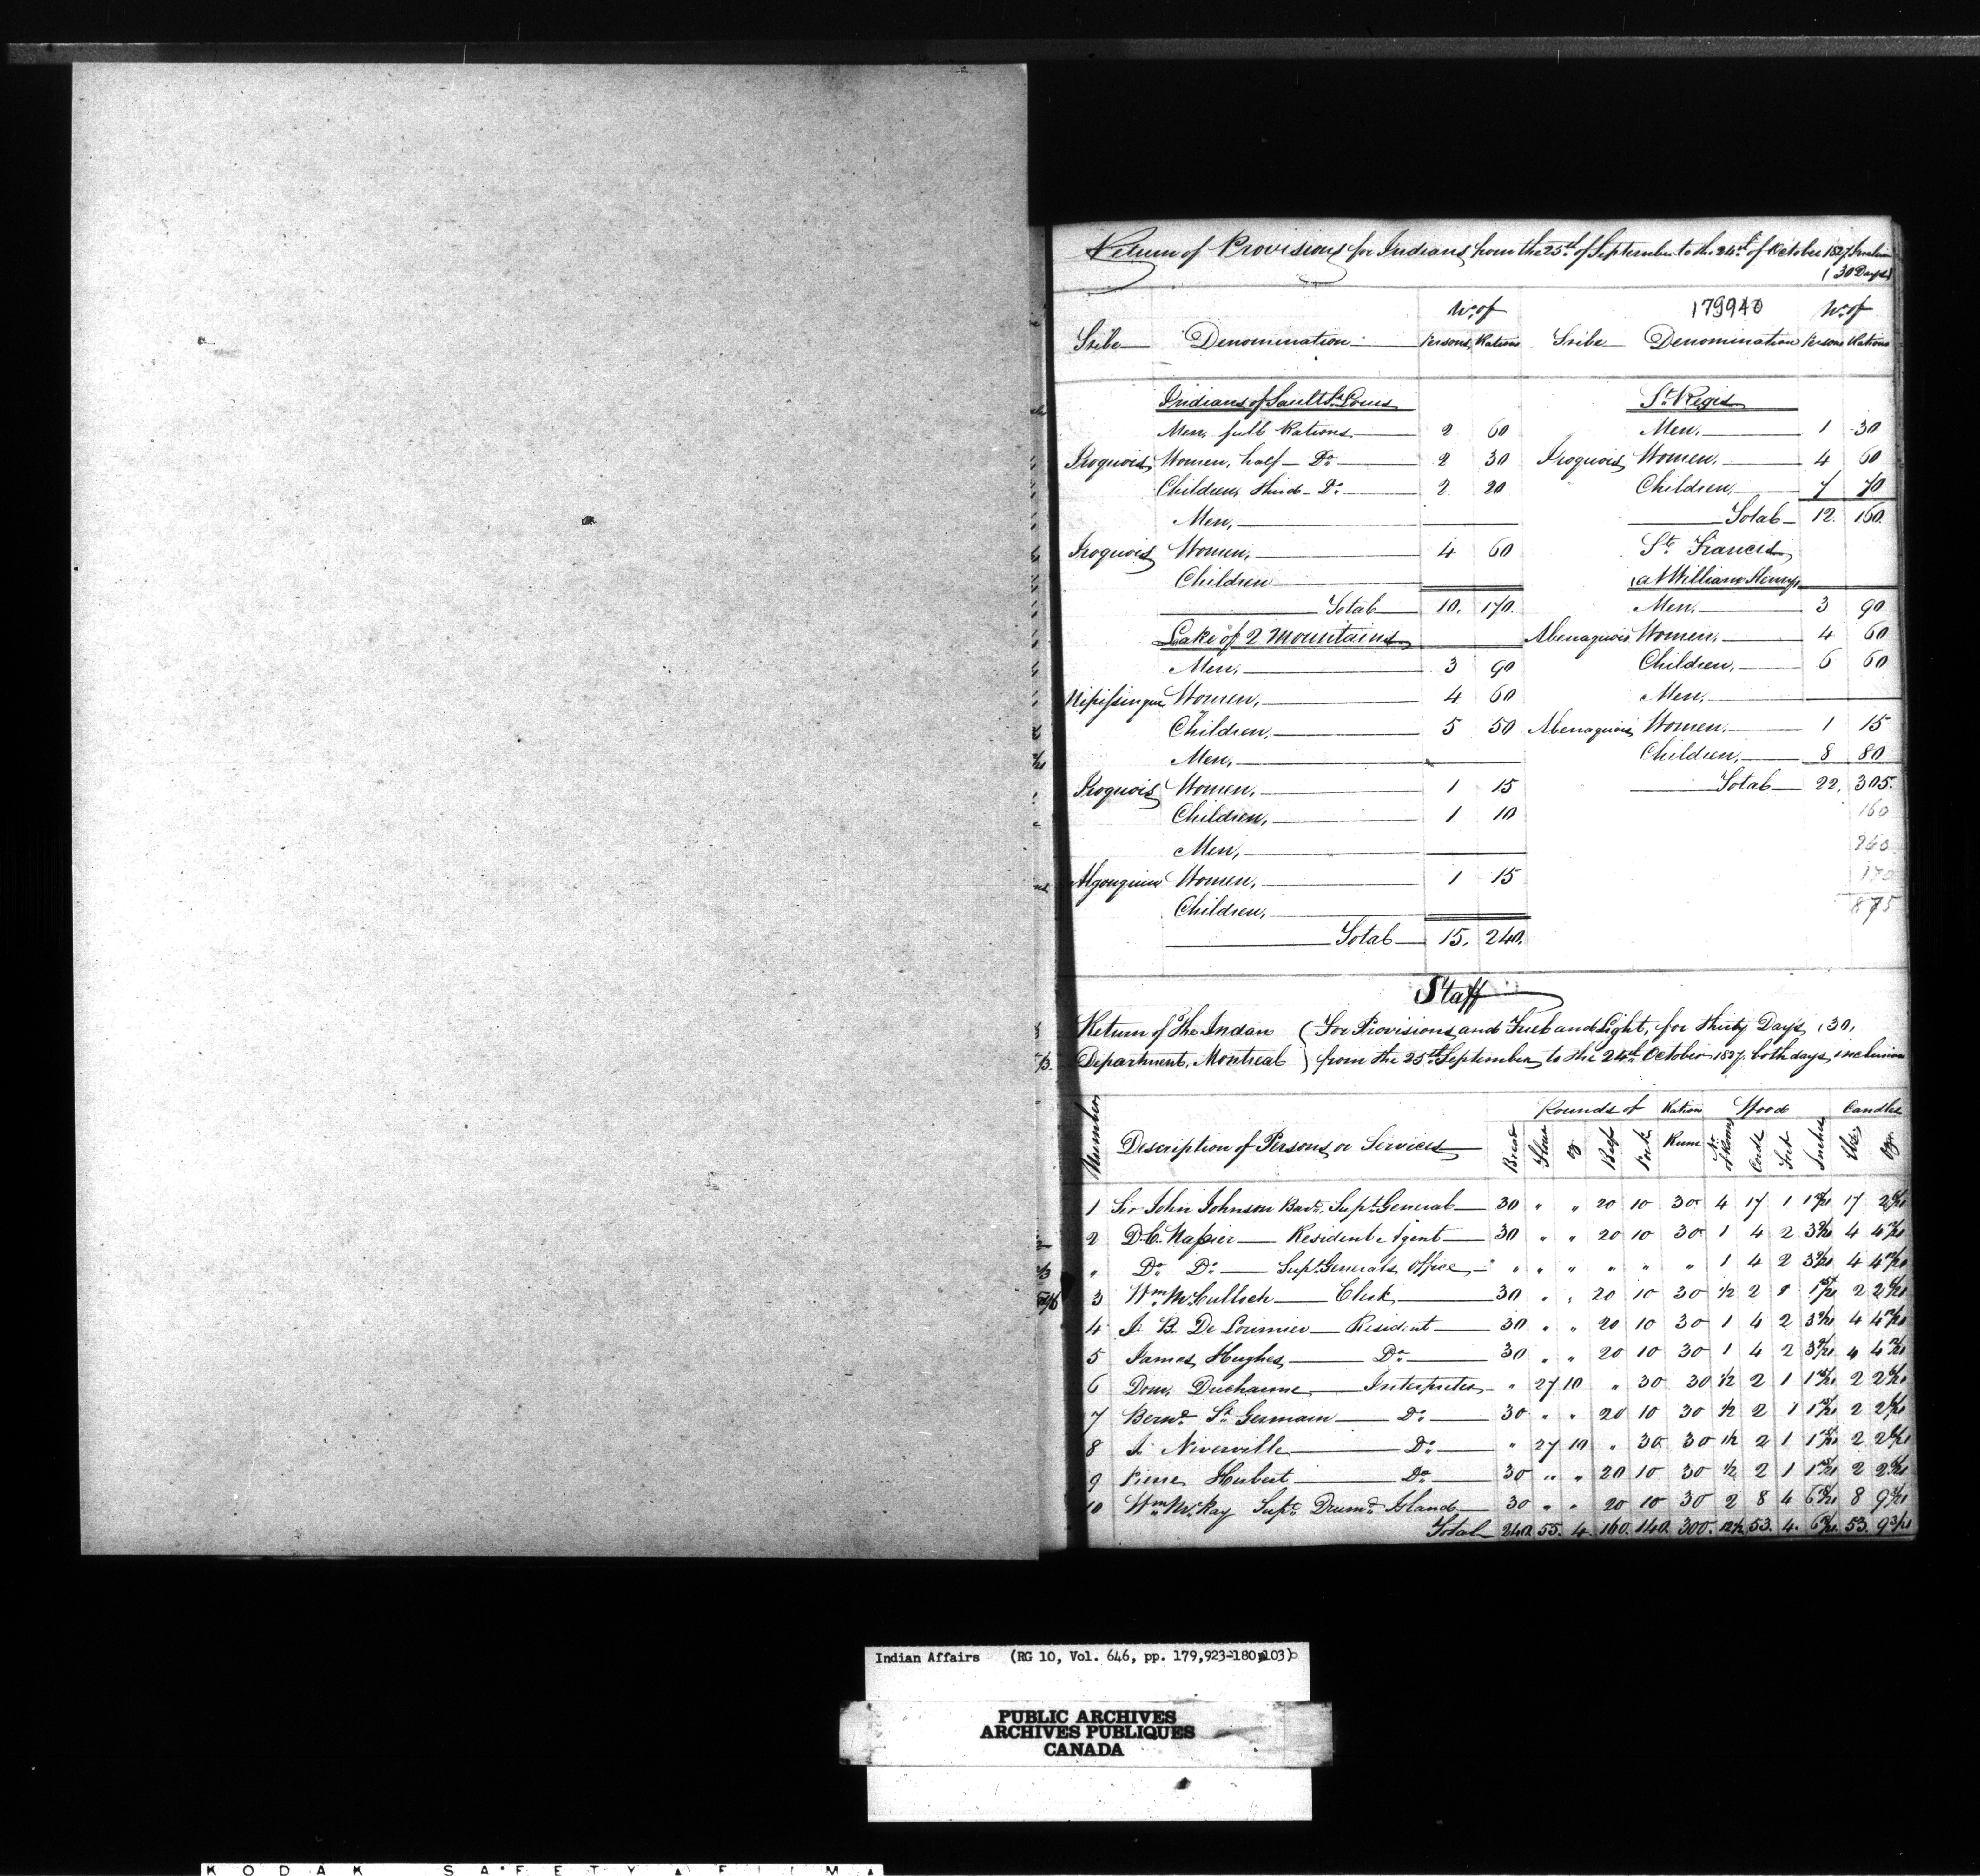 Return of Provisions for Indians from the 25th of September to the 24th of October 1827 Inclusive
(30 Days)
179940
No. of No. of
Tribe Denomination Persons Rations Tribe Denomination Persons Rations
Indians of Sault St. Louis
Men, full Rations 2 60
Iroquois Women, half Do. 2 30
Children, third Do. 2 20
Men,
Iroquois Women, 4 60
Children
Total 10. 170.
Lake of 2 Mountains
Men, 3 90
Nipissingue Women, 4 60
Children, 5 50
Men,
Iroquois Women, 1 15
Children, 1 10
Men,
Algonquin Women, 1 15
Children,
Total 15. 240.
St. Regis
Men, 1 30
Iroquois Women, 4 60
Children, 7 70
Total 12. 160.
St. Francis
at William Henry
Men, 3 90
Abenaquois Women, 4 60
Children, 6 60
Men,
Abenaquois Women, 1 15
Children, 8 80
Total 22. 305.
160
240
170
875
Staff
Return of The Indan (For Provisions and Fuel and Light, for thirty Days, (30,
Department, Montreal ) from the 25th September to the 24th October 1827, both days inclusive
Rounds of Ration Wood Candles
Number Description of Persons or Services Bread Flour oz Beef Pork Rum No. of Rooms Cords Feet Inches lbs oz
1 Sir John Johnson Bart. Supt. General 30 " " 20 10 30 4 17 1 17 2
2 D.C. Napier Resident Agent 30 " " 20 10 30 1 4 2 4
" Do. Do. Supt. Generals Office " " " " " " 1 4 2 4
3 Wm. McCulloch Clerk 30 " " 20 10 30 1/2 2 2
4 J. B. De Lorimier Resident 30 " " 20 10 30 1 4 2 4
5 James Hughes Do. 30 " " 20 10 30 1 4 2 4
6 Dom. Ducharme Interpreter " 27 10 " 30 30 1/2 2 1 2
7 Bernd. St. Germain Do. 30 " " 20 10 30 1/2 2 1 2
8 J. Niverville Do. " 27 10 " 30 30 1/2 2 1 2
9 Pierre Herbert Do. 30 " " 20 10 30 1/2 2 1 2
10 Wm. McKay Supt. Drumd. Island 30 " " 20 10 30 2 8 4 8
Total 240. 55. 4. 160. 140. 300. 12 1/2 53. 4. 53.
Indian Affairs (RG 10, Vol. 646, pp. 179,923-180,103)
PUBLIC ARCHIVES
ARCHIVES PUBLIQUES
CANADA
KODAK SAFETY A FILM A